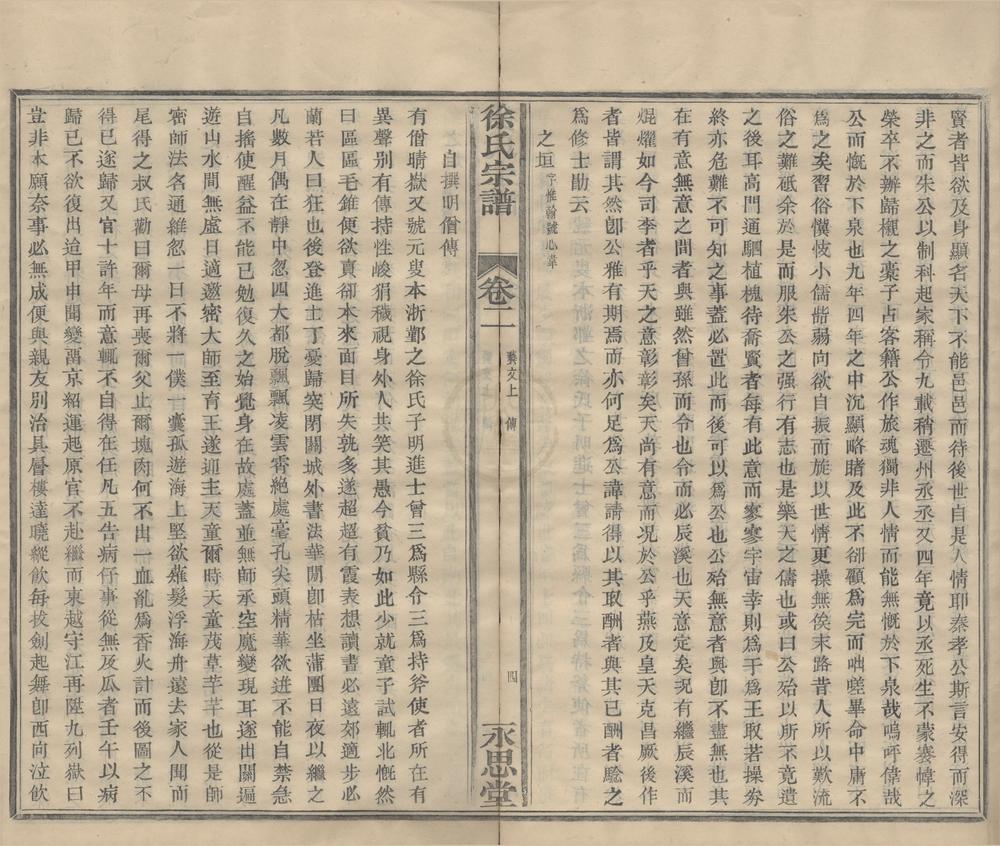 賢者皆欲及身顯名天下不能邑邑而待後世自是人情耶秦孝公斯言安得而深
非之而朱公以制科起家稱令九載稍遷州丞丞又四年竟以丞死生不蒙褰幃之
榮卒不辦歸櫬之槖子占客籍公作旅魂獨非人情而能無慨於下泉哉嗚呼偉哉
公而慨於下泉也九年四年之中沉顯略睹及此不卻顧爲完而咄嗟畢命中庸不
爲之矣習俗懻忮小儒喈弱向欲自振而旋以世情更操無俟末路昔人所以歎流
俗之難砥余於是而服朱公之强行有志也是樂天之儔也或曰公殆以所不竟遺
之後耳高門通駟植槐待喬賢者每有此意而寥寥宇宙幸則爲于爲王取若操券
終亦危難不可知之事蓋必置此而後可以爲公也公殆無意者與卽不盡無也其
在有意無意之間者與雖然曾孫而令也令而必辰溪也天意定矣況有繼辰溪而
焜燿如今司李者乎天之意彰彰矣天尚有意而況於公乎燕及皇天克昌厥後作
者皆謂其然卽公雅有期焉而亦何足爲公諱請得以其取酬者與其已酬者驗之
爲修士勖云
之垣字惟翰號心韋
徐氏宗譜 卷二 藝文上 傳 四 永思堂
自撰明僧傳
有僧晴嶽又號元叟本浙鄞之徐氏子明進士曾三爲縣令三爲持斧使者所在有
異聲别有傳持性峻狷穢視身外人共笑其愚今貧乃如此少就童子試輒北慨然
曰區區毛錐便欲賣卻本來面目所失孰多遂超超有霞表想讀書必遠郊適步必
蘭若人曰狂也後登進士丁憂歸突閉關城外書法華閒卽枯坐蒲團日夜以繼之
凡數月偶在靜中忽四大都脫飄飄凌雲霄絶處毫孔尖頭精華欲迸不能自禁急
自搐使醒益不能已勉復久之始覺身在故處蓋並無師承空魔變現耳遂出關遍
遊山水間無虛日適邀密大師至育王遂迎主天童爾時天童茂草芊芊也從是師
密師法名通雖忽一日不將一僕一囊孤遊海上堅欲薙髮浮海舟遠去家人聞而
尾得之叔氏勸曰爾母再喪爾父止爾塊肉何不出一血胤爲香火計而後圖之不
得已遂歸又官十許年而意輒不自得在任凡五告病仔事從無及瓜者壬午以病
歸已不欲復出迨甲申聞變萬京紹運起原官不赴繼而東越守江再陞九列嶽曰
豈非本願奈事必無成便與親友别治具層樓達曉縱飲每拔劍起舞卽西向泣飲